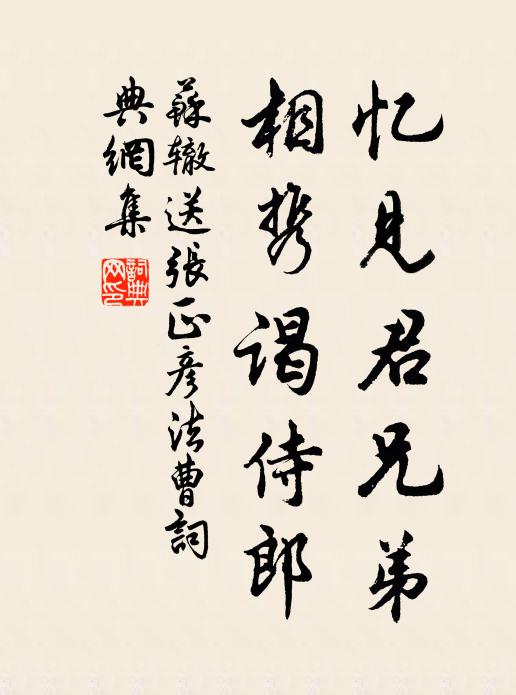 忆见君兄弟
相携谒侍郎
蘇辙送張正彦法曹詞
典網集
詞典网印